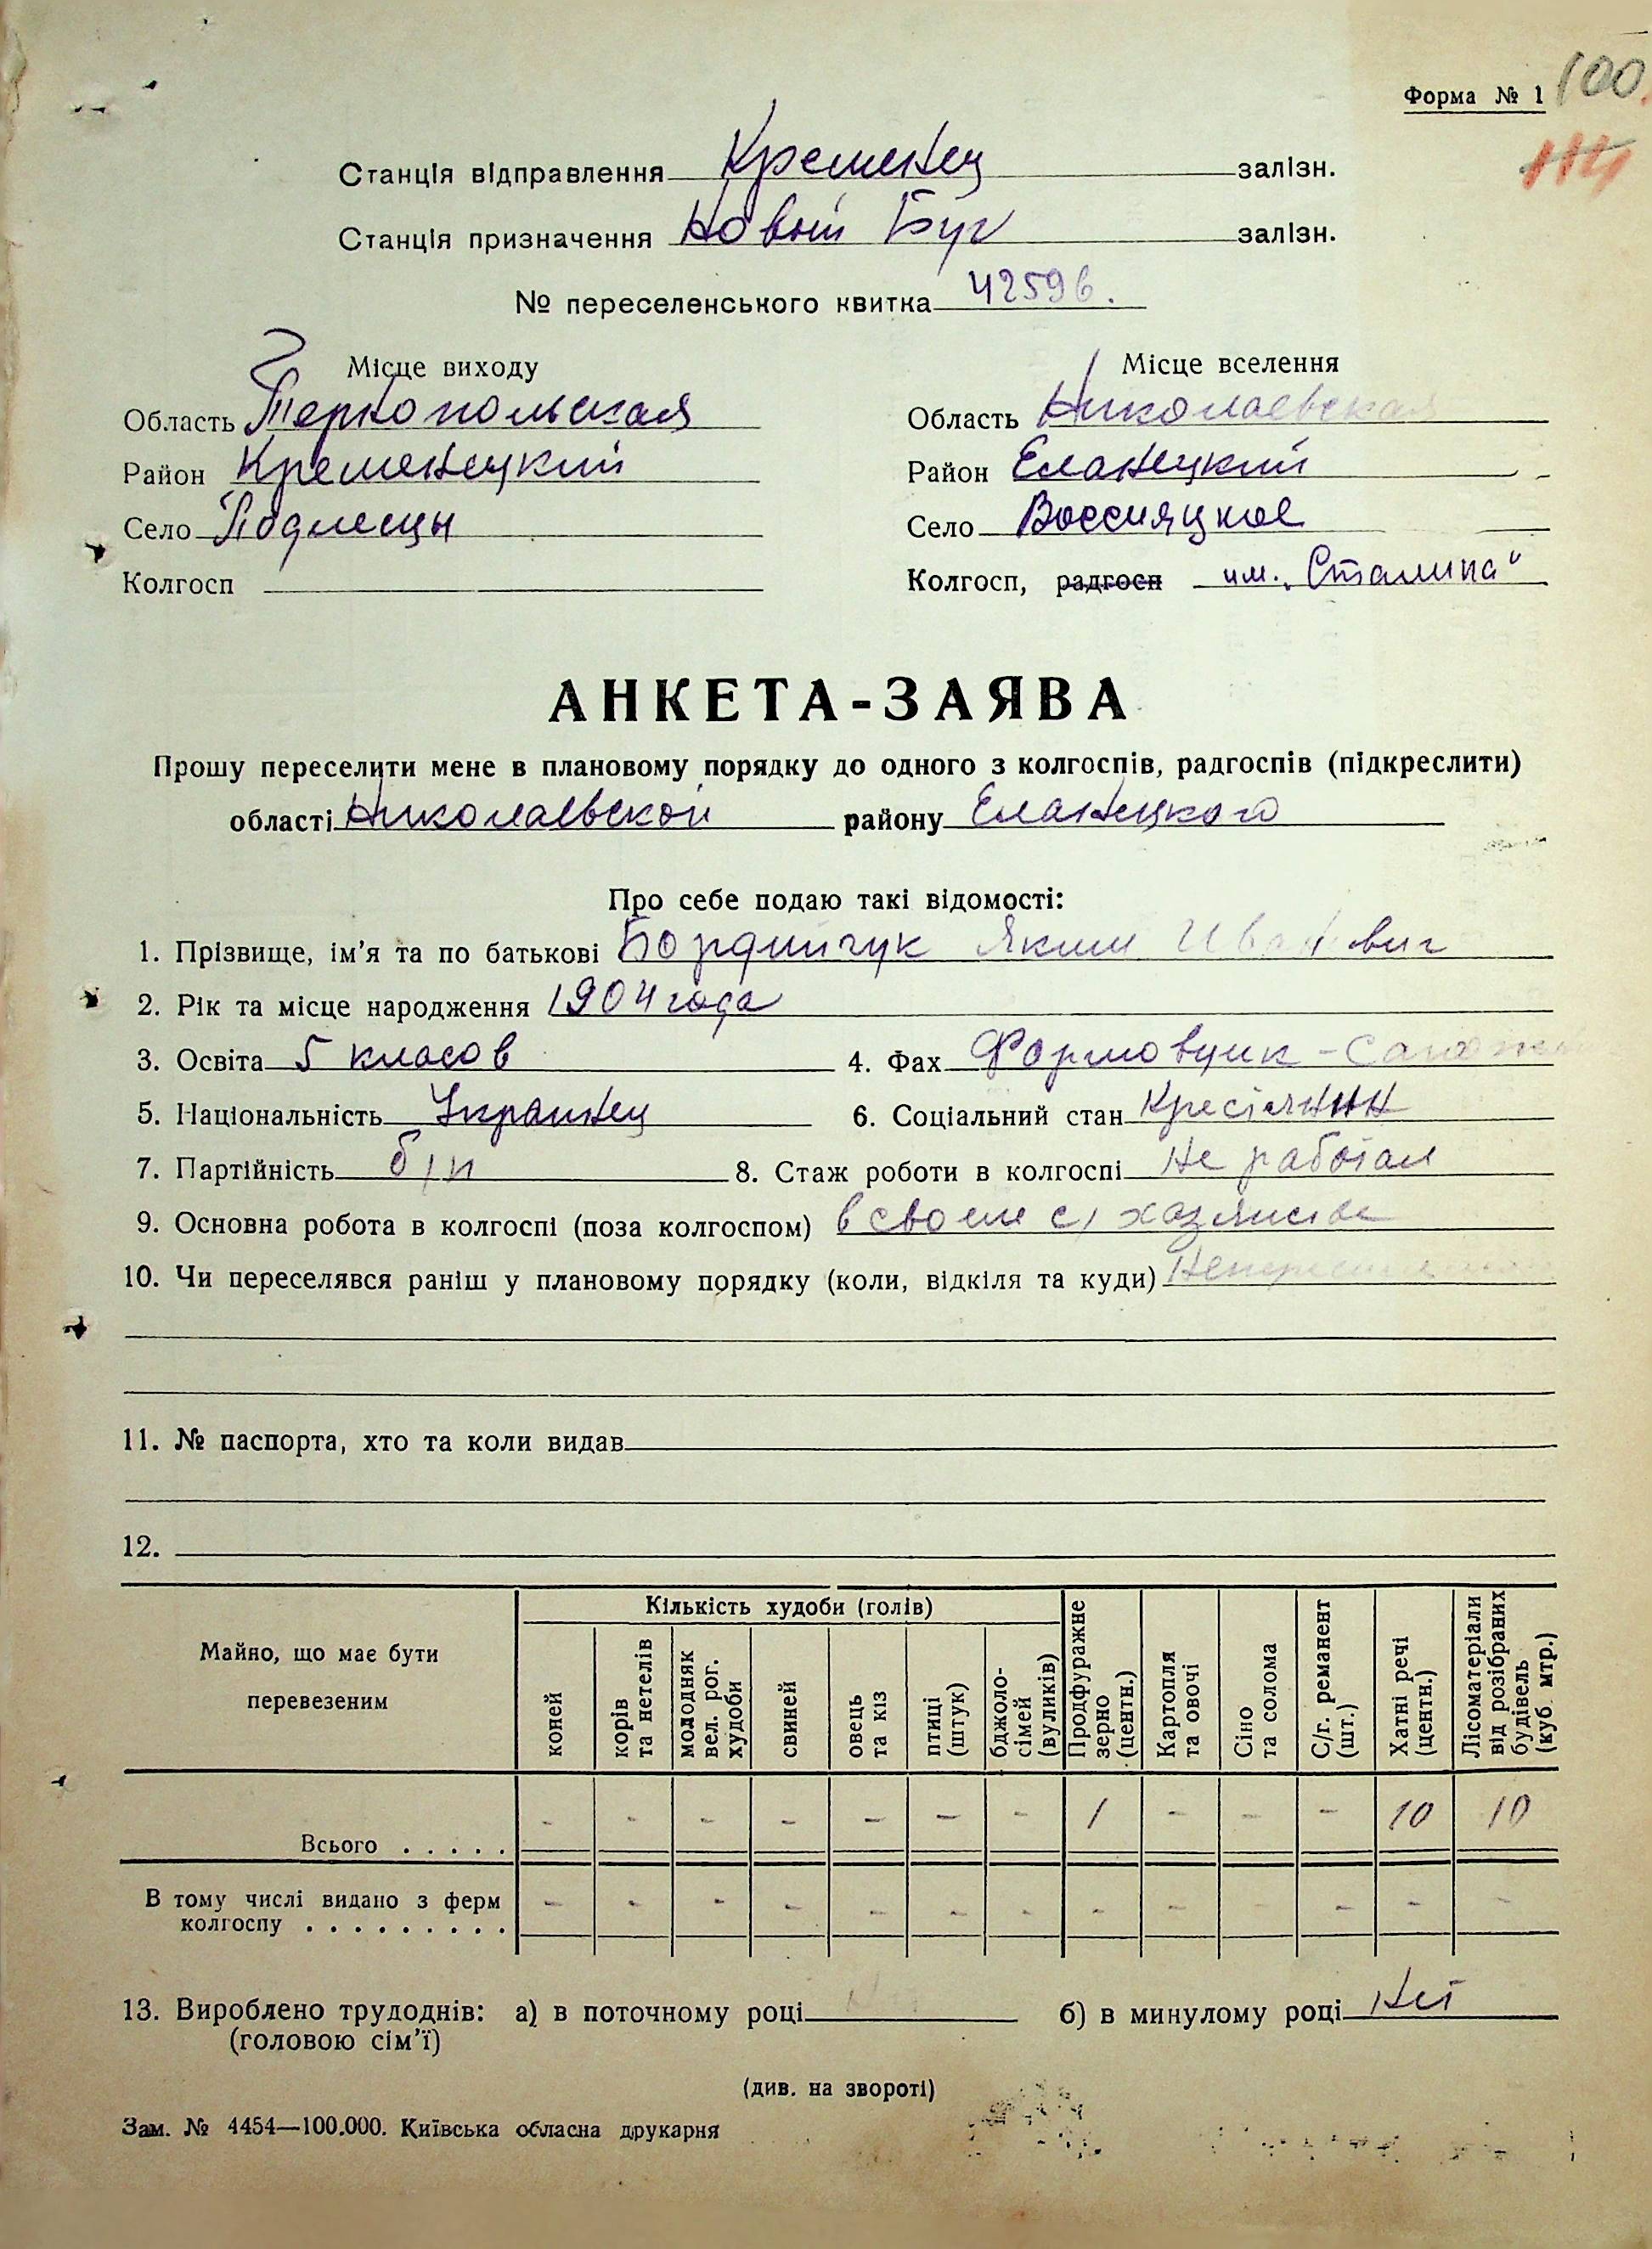 Форма № 1 100.
114
Станція відправлення Кременец залізн.
Станція призначення Новый Буг залізн.
№ переселенського квитка 42596.
Місце виходу Місце вселення
Область Тернопольская Область Николаевская
Район Кременецкий Район Еланецкий
Село Подлесцы Село Воссияцкое
Колгосп Колгосп, радгосп им. „Сталина"
АНКЕТА-ЗАЯВА
Прошу переселити мене в плановому порядку до одного з колгоспів, радгоспів (підкреслити)
області Николаевской району Еланецкого
Про себе подаю такі відомості:
1. Прізвище, ім'я та по батькові Бордийчук Яким Иванович
2. Рік та місце народження 1904 года
3. Освіта 5 класов 4. Фах Формовщик-
5. Національність Украинец 6. Соціальний стан Кресіянин
7. Партійність б/п 8. Стаж роботи в колгоспі Не работал
9. Основна робота в колгоспі (поза колгоспом) в своем с/хазяистве
10. Чи переселявся раніш у плановому порядку (коли, відкіля та куди)
11. № паспорта, хто та коли видав
12.
Майно, що має бути перевезеним Кількість худоби (голів) коней корів та нетелів молодняк вел. рог. худоби свиней овець та кіз птиці (штук) бджоло-сімей (вуликів) Продфуражне зерно (центн.) Картопля та овочі Сіно та солома С/г. реманент (шт.) Хатні речі (центн.) Лісоматеріали від розібраних будівель (куб. мтр.)
Всього . . . . . - - - - - - - 1 - - - 10 10
В тому числі видано з ферм
колгоспу . . . . . . . . . - - - - - - - - - - - -
13. Вироблено трудоднів: а) в поточному році б) в минулому році Нет
(головою сім'ї)
(див. на звороті)
Зам. № 4454—100.000. Київська обласна друкарня